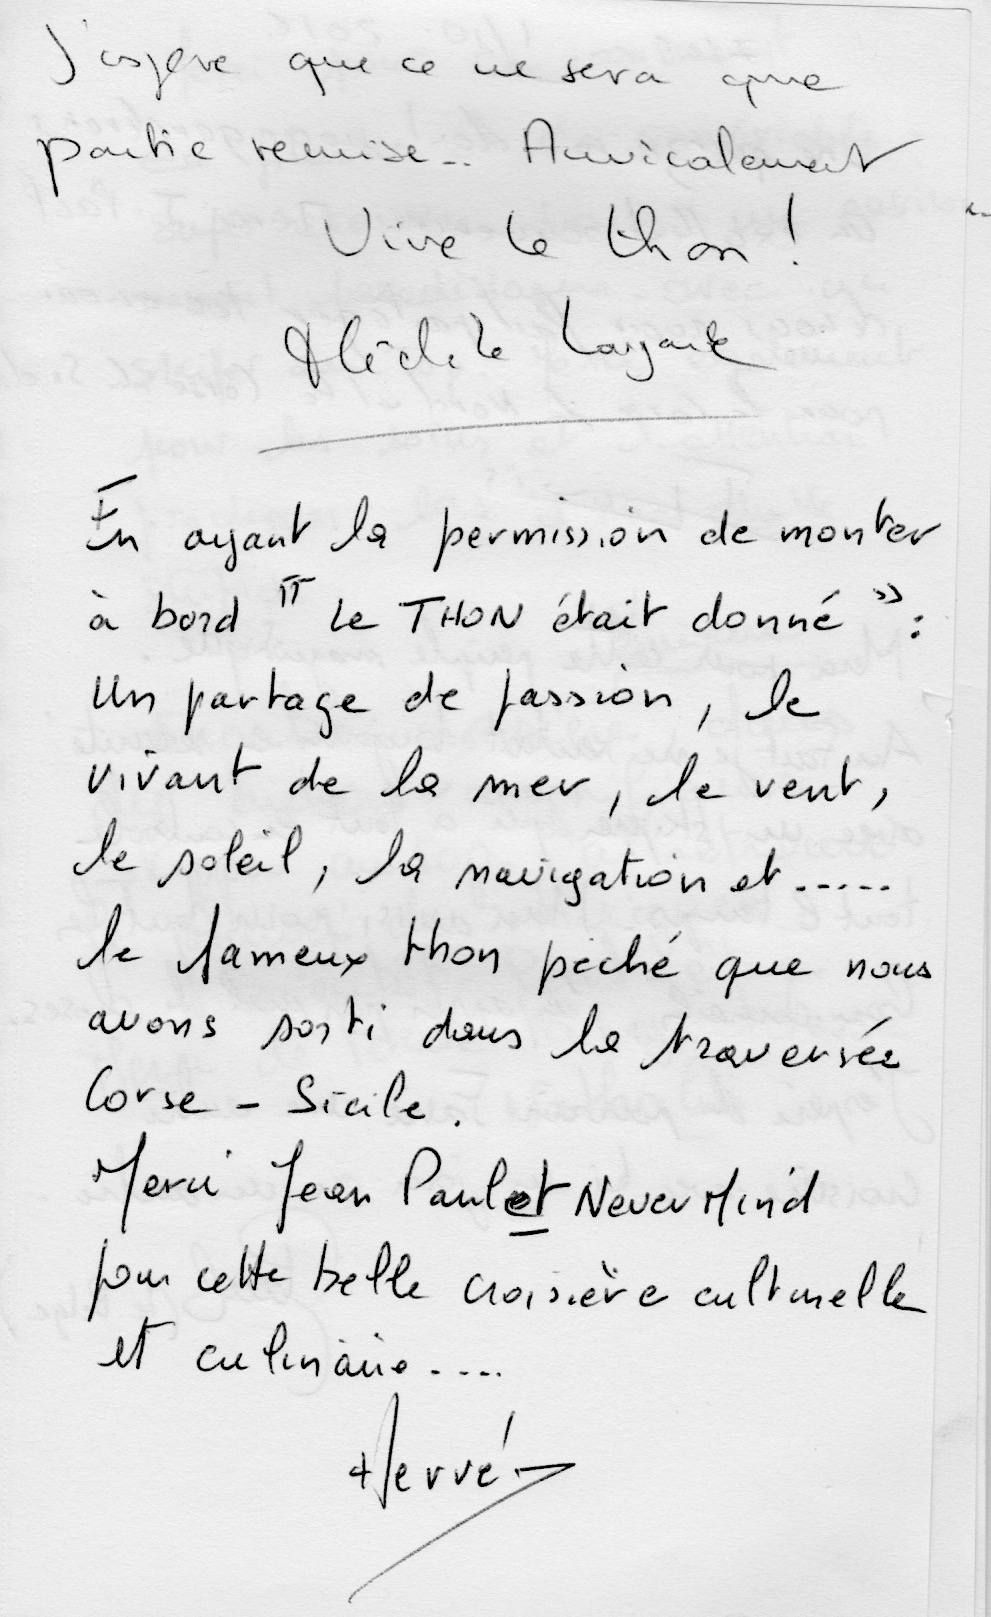 J'espère que ce ne sera que
partie remise... Amicalement
Vive le thon !
En ayant la permission de monter
à bord " Le THON était donné " :
Un partage de passion, le
vivant de la mer, le vent,
le soleil, la navigation et .....
le fameux thon pêché que nous
avons sorti dans la traversée
Corse - Sicile.
Merci Jean Paul et NeverMind
pour cette belle croisière culturelle
et culinaire....
Hervé